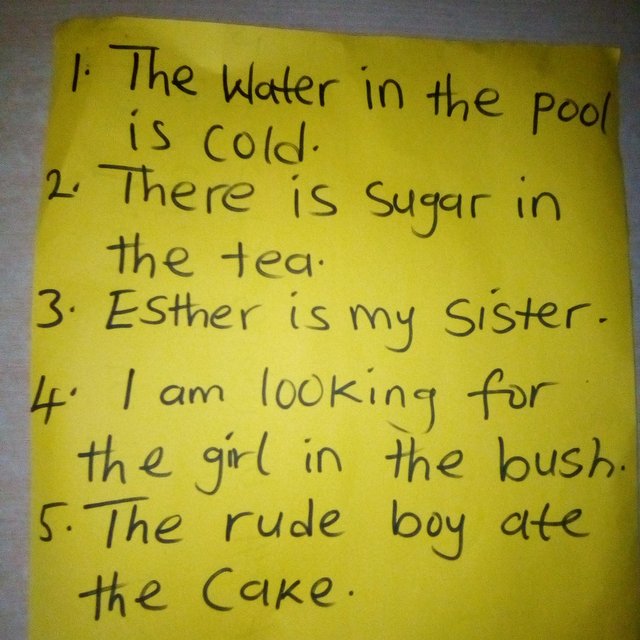 1. The Water in the pool
is cold.
2. There is sugar in
the tea.
3. Esther is my sister.
4. I am looking for
the girl in the bush.
5. The rude boy ate
the Cake.